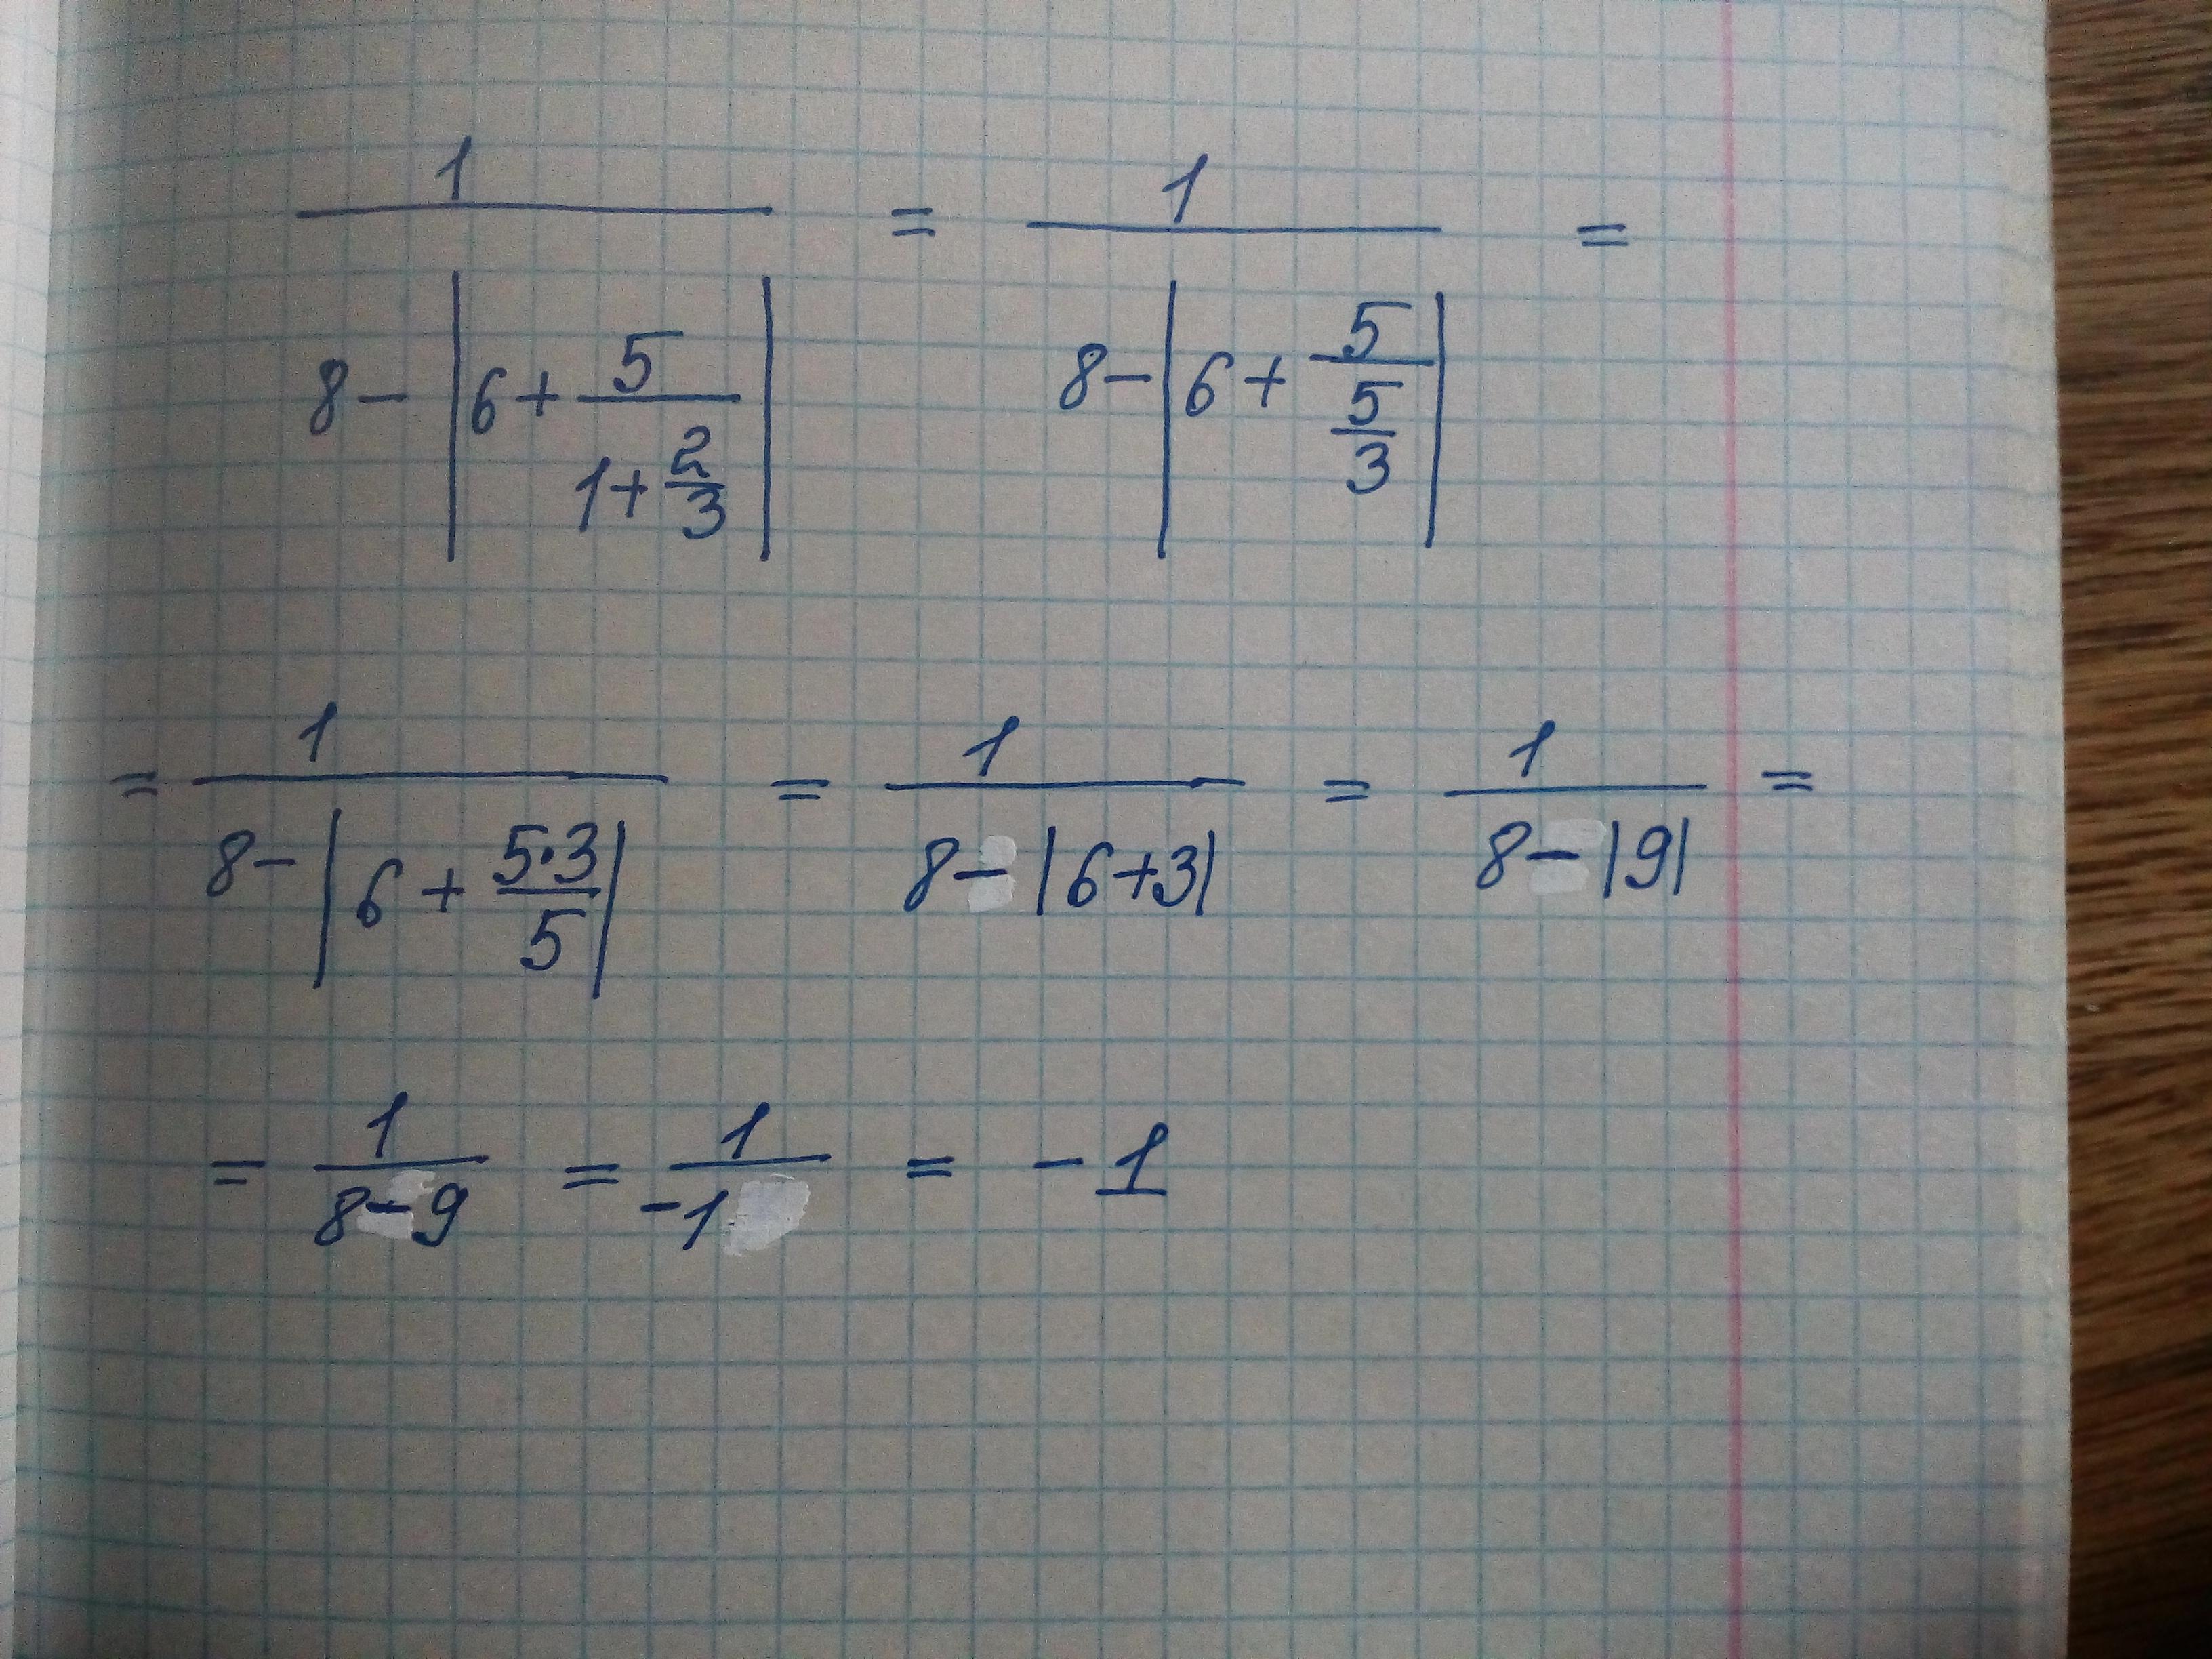 1/(8 - |6 + 5/(1 + 2/3)|) = 1/(8 - |6 + 5/(5/3)|) =
= 1/(8 - |6 + (5·3)/5|) = 1/(8 - |6+3|) = 1/(8 - |9|) =
= 1/(8-9) = 1/(-1) = -1